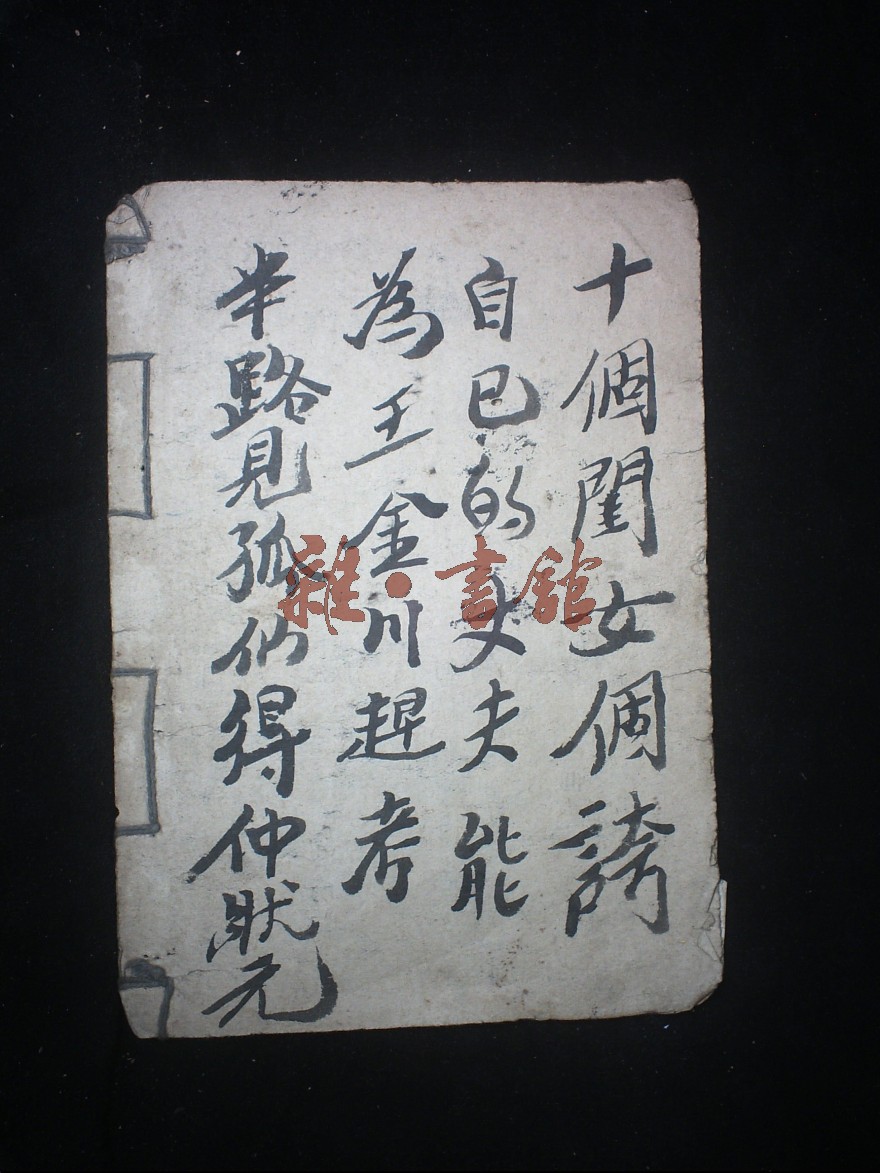 十個閨女個誇
自已的丈夫能
為王金川趕考
半路見孤仙得仲狀元
雜·書館